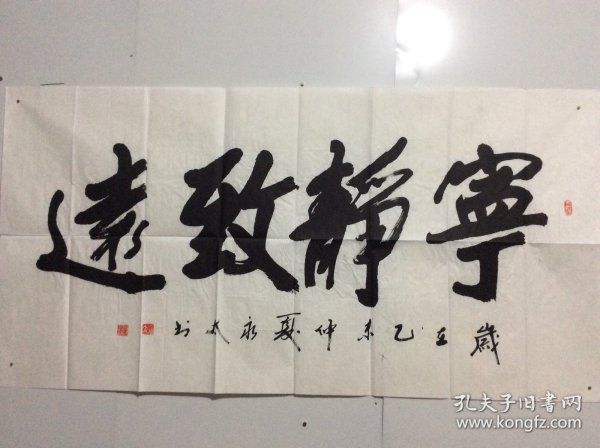 寧靜致遠
歲在乙未仲夏永太书
孔夫子旧书网
www.kongfz.com